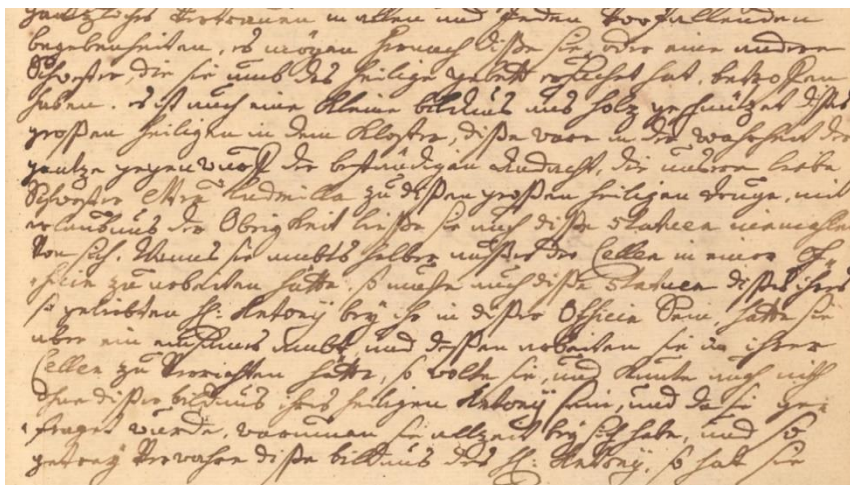 gäntzliches Vertrauen in allen und jeden Vorfallenden
begebenheiten, es mögen hernach diße sie, oder eine andere
Schwester, die sie umb das heilige gebett ersuchet hat, betroffen
haben. es ist auch eine kleine bildnus aus holz geschnützet dißes
großen heiligen in dem Kloster, diße ware in der wahrheit der
gantze gegenwurff der beständigen Andacht, die unsere liebe
Schwester Ludmilla zu dißen großen heiligen truge, mit
erlaubnus der Obrigkeit ließe sie auch diße Statuen niemahlen
Von sich. Wann sie ambts halber außer der Cellen in einer Of-
ficin zu arbeiten hatte, so muste auch diße Statuen dißes ihres
so geliebten H: Antonij bey ihr in dißer Officin sein, hatte sie
aber ein ambt, und dessen arbeiten sie in ihrer
Cellen zu Verrichten hatte, so wolte sie, und kunte auch nit
ohne dißer bildnus ihres heiligen Antonij sein, und da sie ge-
fraget wurde, warumen sie allzeit bey sich habe, und so
getreu Verwahre diße bildnus des H: Antonij, so hat sie